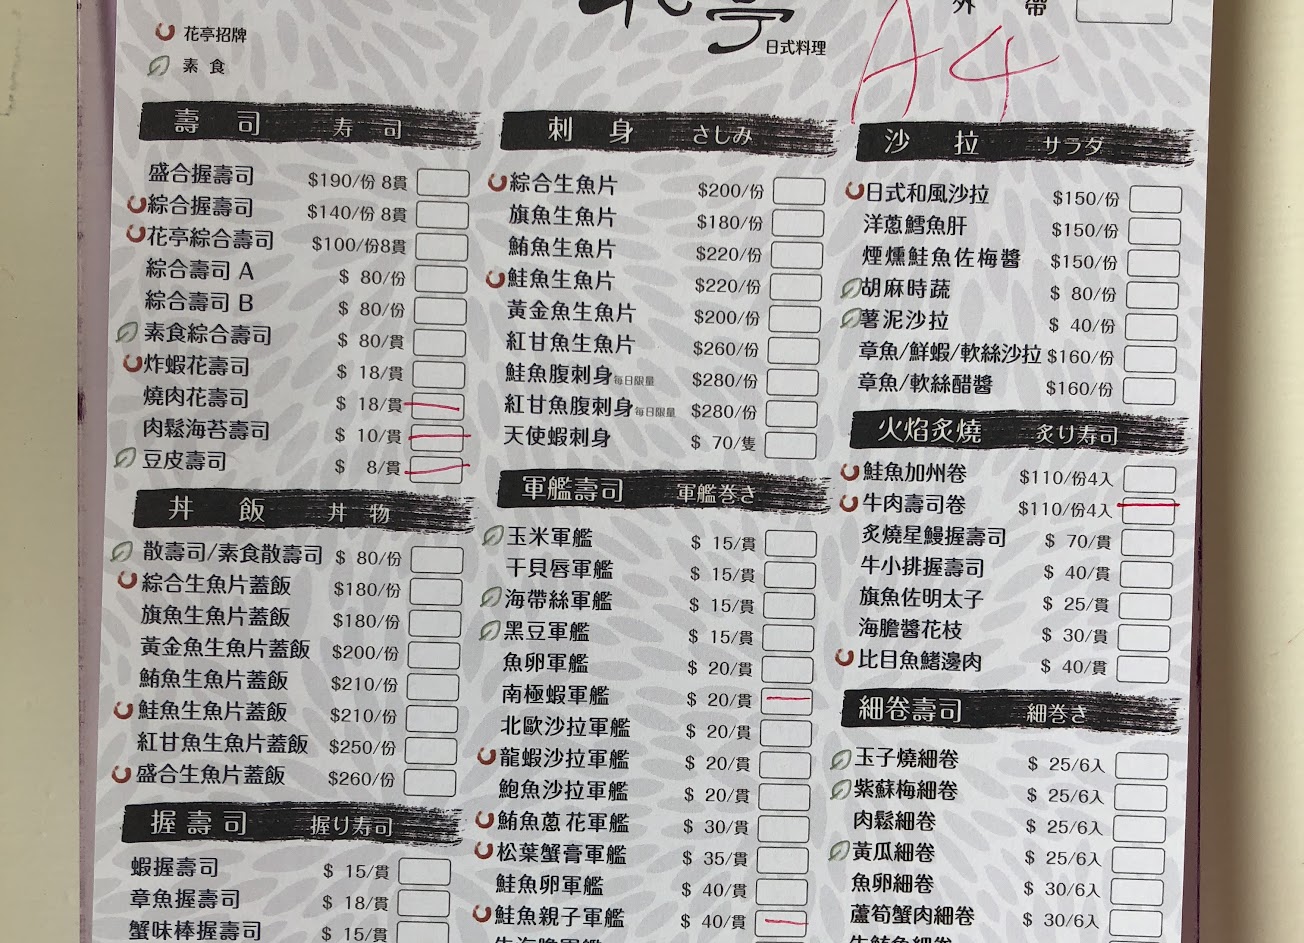 花亭招牌
素食
亭
日式料理
外帶
A4
壽司 寿司
盛合握壽司 $190/份 8貫
綜合握壽司 $140/份 8貫
花亭綜合壽司 $100/份8貫
綜合壽司 A $ 80/份
綜合壽司 B $ 80/份
素食綜合壽司 $ 80/貫
炸蝦花壽司 $ 18/貫
燒肉花壽司 $ 18/貫
肉鬆海苔壽司 $ 10/貫
豆皮壽司 $ 8/貫
丼飯 丼物
散壽司/素食散壽司 $ 80/份
綜合生魚片蓋飯 $180/份
旗魚生魚片蓋飯 $180/份
黃金魚生魚片蓋飯 $200/份
鮪魚生魚片蓋飯 $210/份
鮭魚生魚片蓋飯 $210/份
紅甘魚生魚片蓋飯 $250/份
盛合生魚片蓋飯 $260/份
握壽司 握り寿司
蝦握壽司 $ 15/貫
章魚握壽司 $ 18/貫
蟹味棒握壽司 $ 15/貫
刺身 さしみ
綜合生魚片 $200/份
旗魚生魚片 $180/份
鮪魚生魚片 $220/份
鮭魚生魚片 $220/份
黃金魚生魚片 $200/份
紅甘魚生魚片 $260/份
鮭魚腹刺身每日限量 $280/份
紅甘魚腹刺身每日限量 $280/份
天使蝦刺身 $ 70/隻
軍艦壽司 軍艦巻き
玉米軍艦 $ 15/貫
干貝唇軍艦 $ 15/貫
海帶絲軍艦 $ 15/貫
黑豆軍艦 $ 15/貫
魚卵軍艦 $ 20/貫
南極蝦軍艦 $ 20/貫
北歐沙拉軍艦 $ 20/貫
龍蝦沙拉軍艦 $ 20/貫
鮑魚沙拉軍艦 $ 20/貫
鮪魚蔥花軍艦 $ 30/貫
松葉蟹膏軍艦 $ 35/貫
鮭魚卵軍艦 $ 40/貫
鮭魚親子軍艦 $ 40/貫
沙拉 サラダ
日式和風沙拉 $150/份
洋蔥鱈魚肝 $150/份
煙燻鮭魚佐梅醬 $150/份
胡麻時蔬 $ 80/份
薯泥沙拉 $ 40/份
章魚/鮮蝦/軟絲沙拉 $160/份
章魚/軟絲醋醬 $160/份
火焰炙燒 炙り寿司
鮭魚加州卷 $110/份4入
牛肉壽司卷 $110/份4入
炙燒星鰻握壽司 $ 70/貫
牛小排握壽司 $ 40/貫
旗魚佐明太子 $ 25/貫
海膽醬花枝 $ 30/貫
比目魚鰭邊肉 $ 40/貫
細卷壽司 細巻き
玉子燒細卷 $ 25/6入
紫蘇梅細卷 $ 25/6入
肉鬆細卷 $ 25/6入
黃瓜細卷 $ 25/6入
魚卵細卷 $ 30/6入
蘆筍蟹肉細卷 $ 30/6入